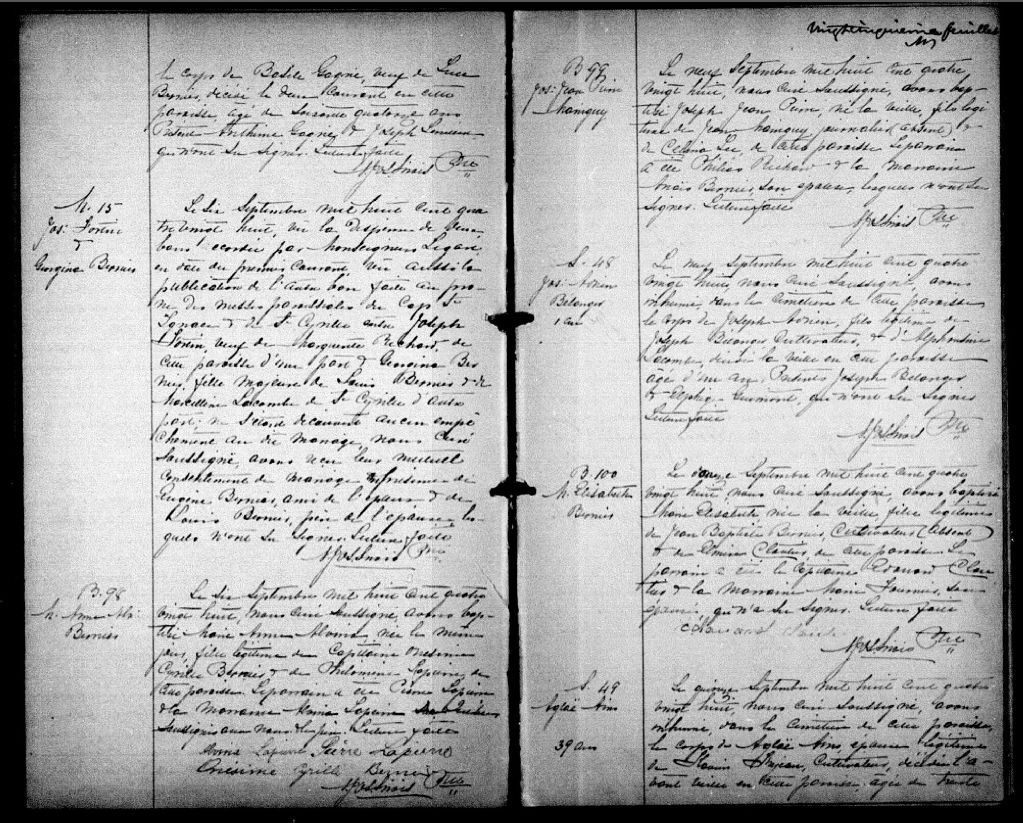 le corps de Basile Gagné, veuf de Luce
Bernier, décédé le deux courant en cette
paroisse, âgé de Soixante quatorze ans
Présents Anthime Gagné & Joseph Lemieux
qui n'ont su signer. Lecture faite
Ptre
M. 15
Jos: Fortin
&
Georgina Bernier
Le Six Septembre mil huit cent qua
tre vingt huit, vu la Dispense de deux
bans accordée par Monseigneur Légaré
en date du premier courant, vu aussi la
publication de l'autre ban faite au prô
ne des messes paroissiales du Cap St
Ignace & de St Cyrille entre Joseph
Fortin, veuf de Marguerite Richard, de
cette paroisse d'une part & Georgina Ber
nier, fille majeure de Louis Bernier & de
Marcelline Lacombe de St Cyrille d'autre
part; ne s'étant découvert aucun empê
chement au dit mariage, nous Curé
Soussigné, avons reçu leur mutuel
consentement de mariage en présence de
Eugène Bernier, ami de l'époux & de
Louis Bernier, père de l'épouse, les
quels n'ont su signer. Lecture faite
Ptre
B. 98
M. Anne Ma
Bernier
Le Six Septembre mil huit cent quatre
vingt huit, nous curé soussigné, avons bap-
tisé Marie Anne Alvina née le même
jour, fille légitime de Capitaine Onésime
Cyrille Bernier & de Philomène Lapierre, de
cette paroisse. Le parrain a été Pierre Lapierre
& la marraine Anna Lapierre
soussignés avec nous. Lecture faite
Anna Lapierre Pierre Lapierre
Onésime Cyrille Bernier
Ptre
feuillet
B 99
Jos: Jean Pierre
Mainguy
Le neuf Septembre mil huit cent quatre
vingt huit, nous Curé Soussigné, avons bap-
tisé Joseph Jean Pierre, né la veille, fils légi
time de Jean Mainguy, journalier (absent) &
de Célina de cette paroisse. Le parrain
a été Philias Richard & la Marraine
Anaïs Bernier, son épouse, lesquels n'ont su
signer. Lecture faite
Ptre
S. 48
Jos: Adrien
Bélanger
1 an
Le neuf Septembre mil huit cent quatre
vingt huit, nous Curé Soussigné, avons
inhumé, dans le cimetière de cette paroisse
le corps de Joseph Adrien, fils légitime de
Joseph Bélanger Cultivateur, & d'Alphonsine
Lacombe, décédé la veille en cette paroisse
âgé d'un an. Présents Joseph Bélanger
& Elzéar Guimond, qui n'ont su signer
Lecture faite
Ptre
B. 100
M. Elisabeth
Bernier
Le douze Septembre mil huit cent quatre
vingt huit, nous curé soussigné, avons baptisé
Marie Elisabeth née la veille, fille légitime
de Jean Baptiste Bernier, Cultivateur (absent)
& de Elmire Cloutier, de cette paroisse. Le
parrain a été le Capitaine Edouard Clou
tier & la Marraine Marie Fournier, son
épouse, qui n'a su signer. Lecture faite
Edouard Cloutier
Ptre
S. 49
Aglaé
39 ans
Le quinze Septembre mil huit cent quatre
vingt huit, nous curé soussigné, avons
inhumé, dans le cimetière de cette paroisse,
le corps de Aglaé épouse légitime
de Cultivateur, décédée l'a-
vant veille en cette paroisse, âgée de trente